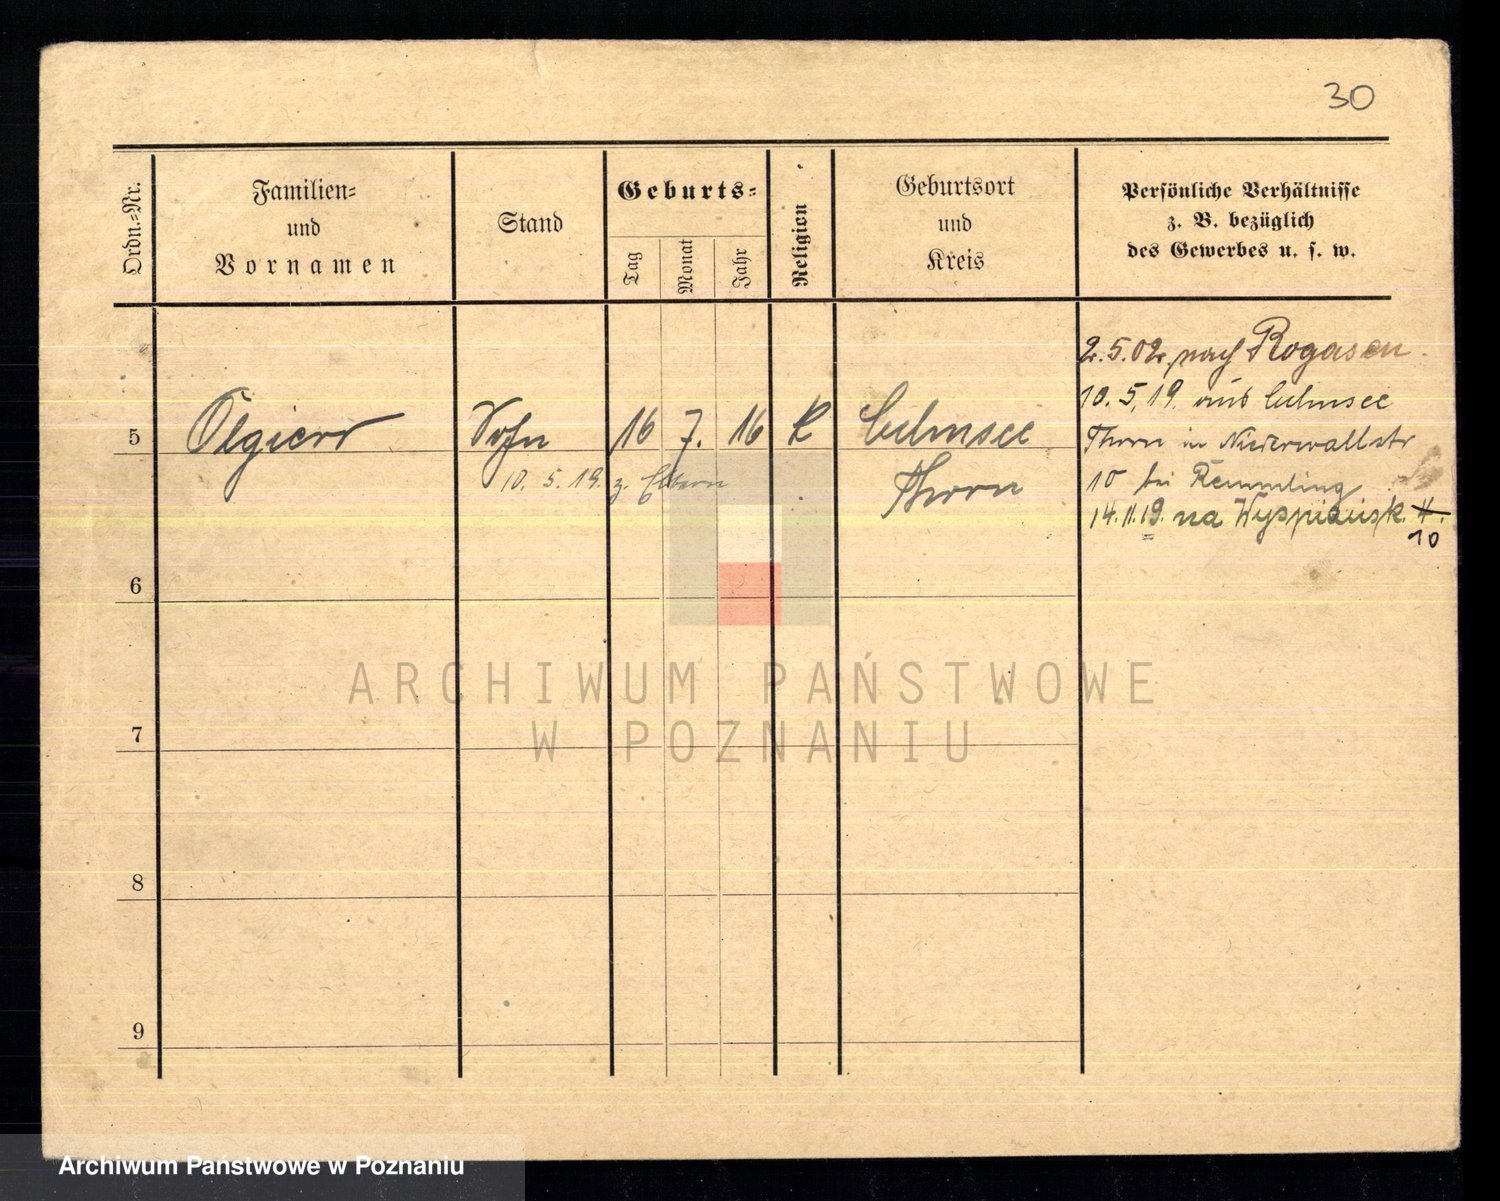 30
Ordn.-Nr.
Familien-
und
Vornamen
Stand
Geburts-
Tag
Monat
Jahr
Religion
Geburtsort
und
Kreis
Persönliche Verhältnisse
z. B. bezüglich
des Gewerbes u. s. w.
2.5.02. nach Rogasen
10.5.19. aus Culmsee
5 Olgierd Sohn 16 7. 16 K Culmsee
Thorn in Niederwallstr
10. 5. 19. z. Eltern
Thorn
10 bei Remmling
14.11.19. na Wyspiańsk.
10
6
7
8
9
ARCHIWUM PAŃSTWOWE
W POZNANIU
Archiwum Państwowe w Poznaniu